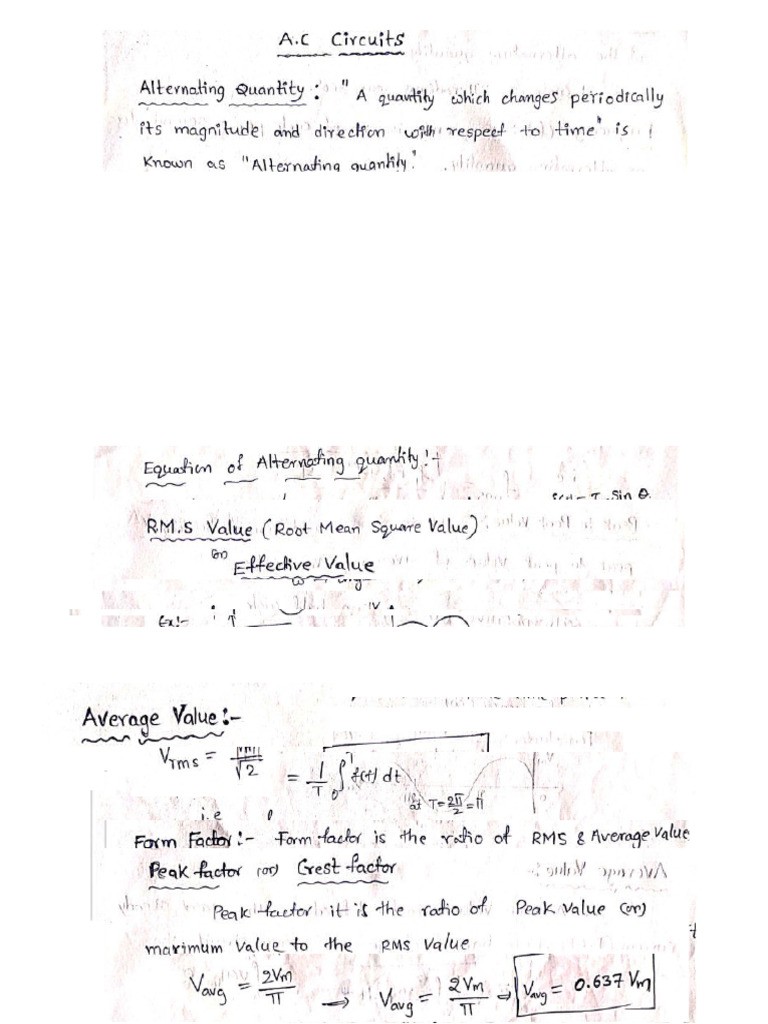 A.C Circuits
Alternating Quantity : " A quantity which changes periodically
its magnitude and direction with respect to time" is
Known as "Alternating quantity".
Equation of Alternating quantity :-
Sin θ.
RM.S Value (Root Mean Square Value)
(or)
Effective Value
Ex:-
Average Value:-
Vrms = Vm/√2 = 1/T ∫₀ᵀ f(t) dt
at T = 2π/2 = π
i.e
Form Factor:- Form factor is the ratio of RMS & Average Value
Peak factor (or) Crest factor
Peak factor it is the ratio of Peak Value (or)
maximum Value to the RMS Value
Vavg = 2Vm/π → Vavg = 2Vm/π → Vavg = 0.637 Vm